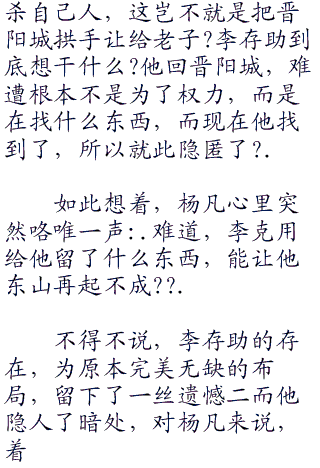 杀自己人，这岂不就是把晋
阳城拱手让给老子?李存助到
底想干什么?他回晋阳城，难
遭根本不是为了权力，而是
在找什么东西，而现在他找
到了，所以就此隐匿了?.
如此想着，杨凡心里突
然咯唯一声:.难道，李克用
给他留了什么东西，能让他
东山再起不成??.
不得不说，李存助的存
在，为原本完美无缺的布
局，留下了一丝遗憾二而他
隐人了暗处，对杨凡来说，
着